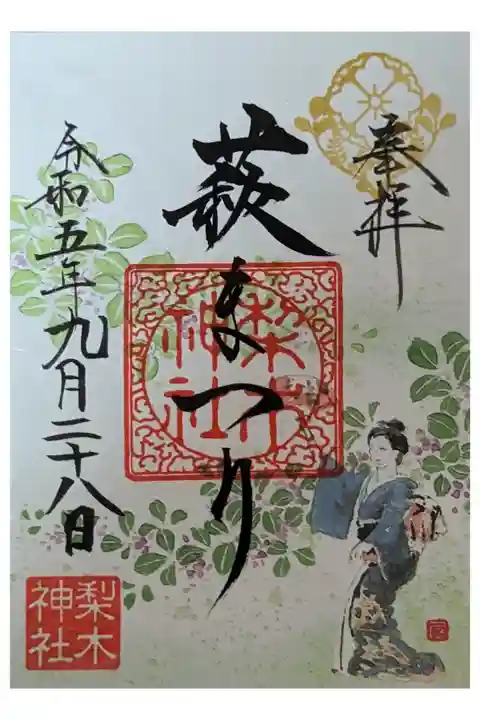 奉拝
萩まつり
梨木
神社
令和五年九月二十八日
梨木
神社